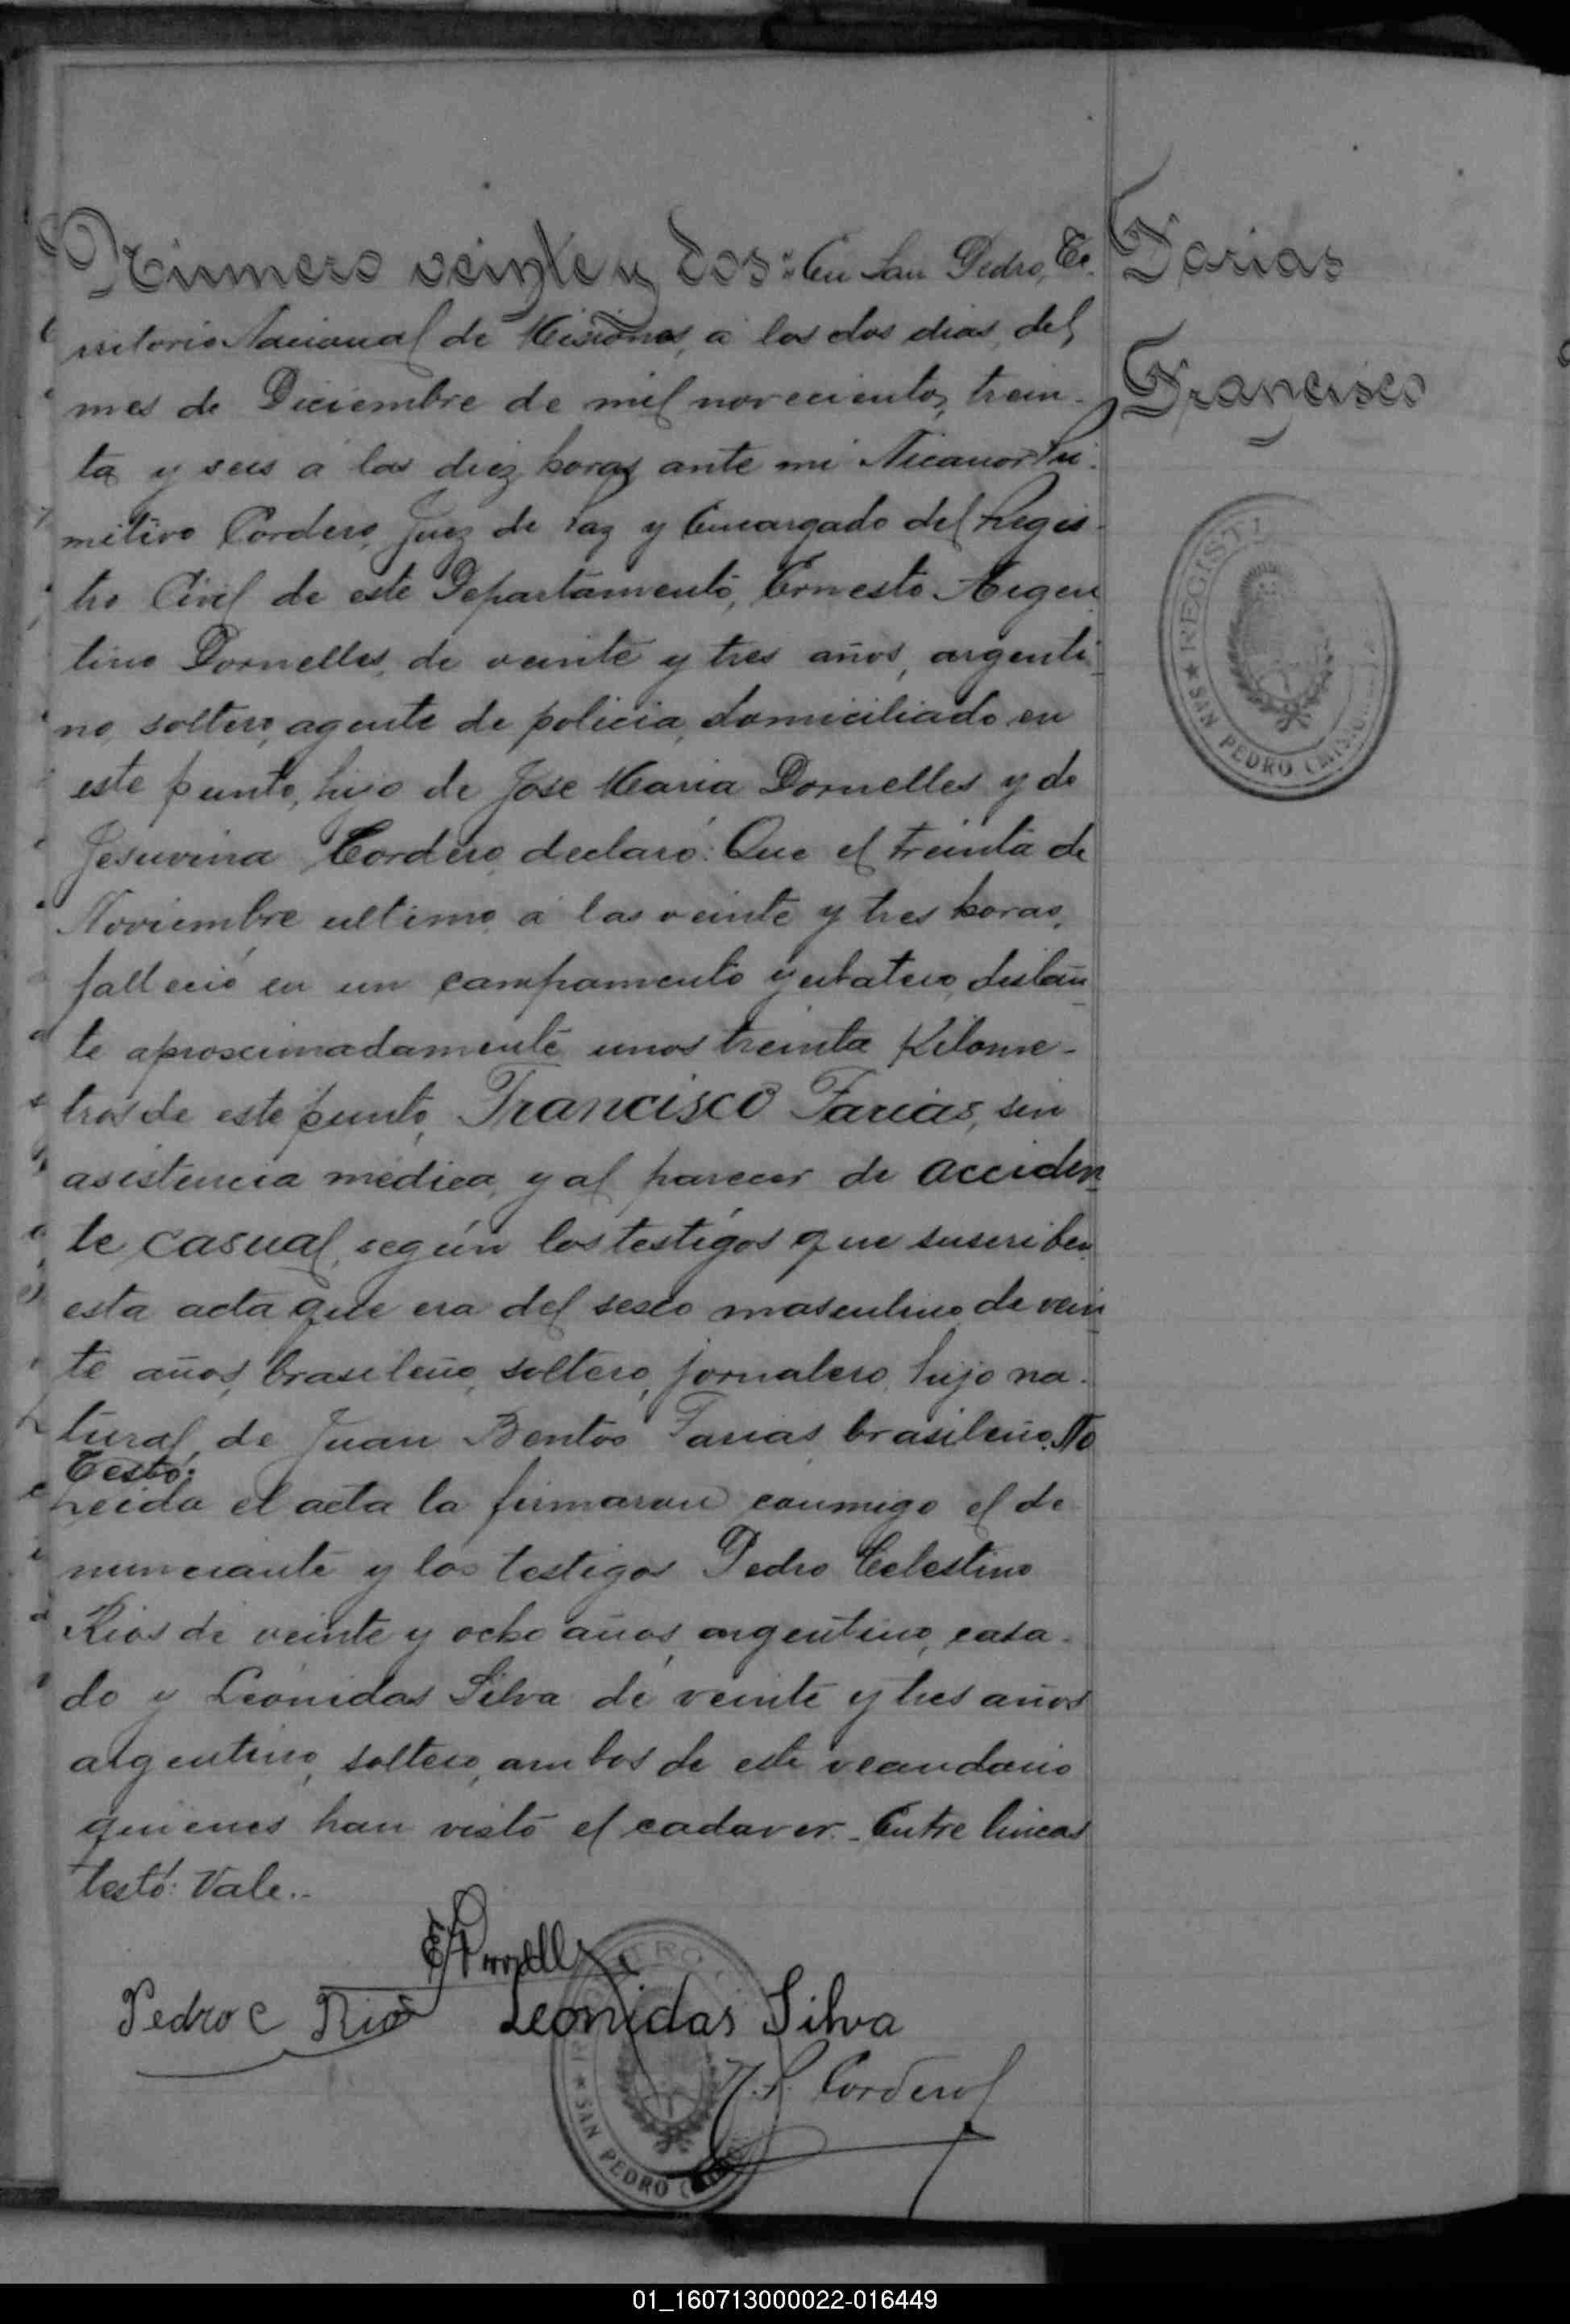 Número veinte y dos: En San Pedro, Te-
rritorio Nacional de Misiones, a los dos dias del
mes de Diciembre de mil novecientos trein-
ta y seis a las diez horas ante mi Nicanor Pri-
mitivo Cordero, Juez de Paz y Encargado del Regis-
tro Civil de este Departamento, Ernesto Argen
tino Dornelles, de veinte y tres años, argenti
no, soltero, agente de policia, domiciliado en
este punto, hijo de José Maria Dornelles y de
Jesuvina Cordero, declaró: Que el treinta de
Noviembre ultimo a las veinte y tres horas,
falleció en un campamento yerbatero, distan
te aproximadamente unos treinta Kilome-
tros de este punto, Francisco Farias, sin
asistencia médica, y al parecer de acciden
te casual, según los testigos que suscriben
esta acta que era del sexo masculino de vein
te años, brasileño, soltero, jornalero, hijo na-
tural de Juan Bentos Farias brasileño. No
Testó:
Leida el acta la firmaron conmigo el de
nunciante y los testigos Pedro Celestino
Rios de veinte y ocho años, argentino, casa-
do y Leónidas Silva de veinte y tres años
argentino, soltero, ambos de este veandario
quienes han visto el cadaver.- Entre lineas
testó: Vale.-
Pedro C Rios
Leonidas Silva
N. P. Cordero
SAN PEDRO
Farias
Francisco
REGIST
SAN PEDRO (MISIONES)
01_160713000022-016449